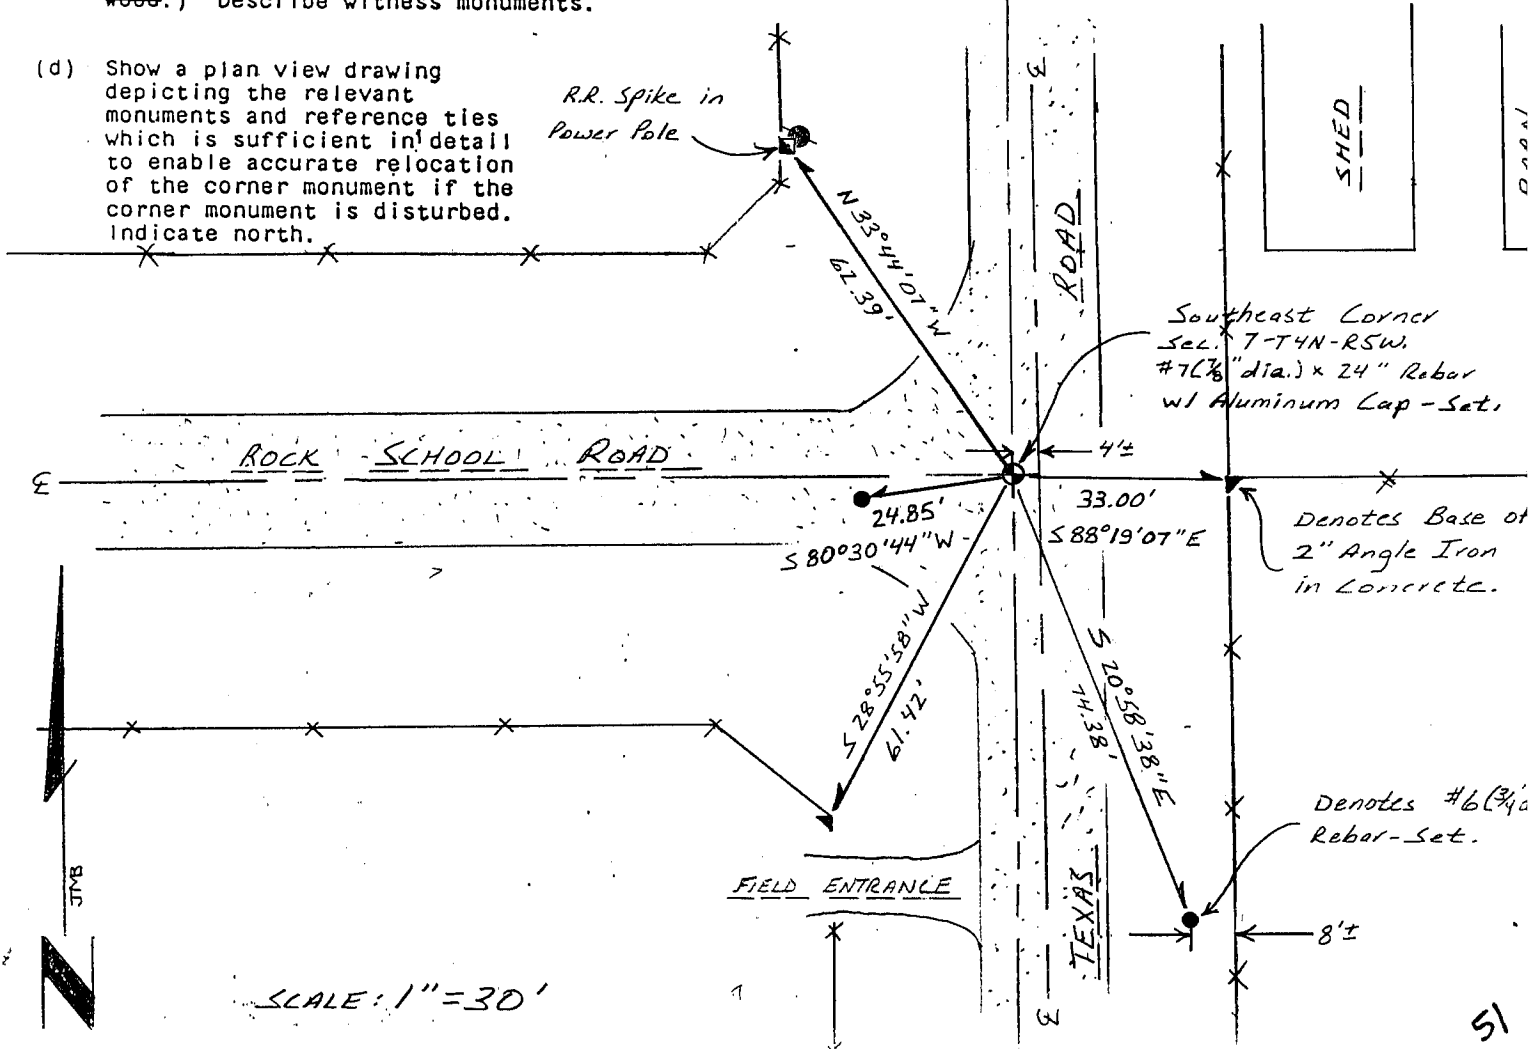 wood.) Describe witness monuments.
(d) Show a plan view drawing
depicting the relevant
monuments and reference ties
which is sufficient in detail
to enable accurate relocation
of the corner monument if the
corner monument is disturbed.
Indicate north.
R.R. Spike in
Power Pole
N 33°44'07" W
62.39'
ROAD
SHED
Southeast Corner
Sec. 7-T4N-R5W.
#7(7/8" dia.) x 24" Rebar
w/ Aluminum Cap - Set.
4'±
ROCK SCHOOL ROAD
℄
24.85'
S 80°30'44" W
33.00'
S 88°19'07" E
Denotes Base of
2" Angle Iron
in Concrete.
S 28°55'58" W
61.42'
S 20°58'38" E
74.38'
Denotes #6 (3/4"
Rebar-Set.
FIELD ENTRANCE
TEXAS
8'±
JMB
N
SCALE: 1"=30'
51